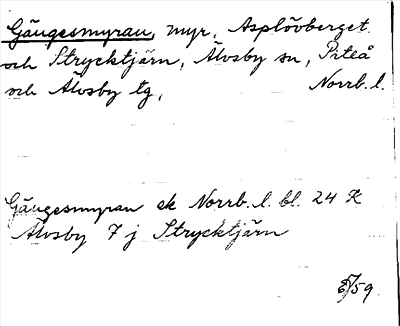 Gäugesmyran, myr, Asplövberget
och Strycktjärn, Älvsby sn, Piteå
och Älvsby tg, Norrb. l.
Gäugesmyran ek Norrb. l. bl. 24 K
Älvsby 7 j Strycktjärn
59.